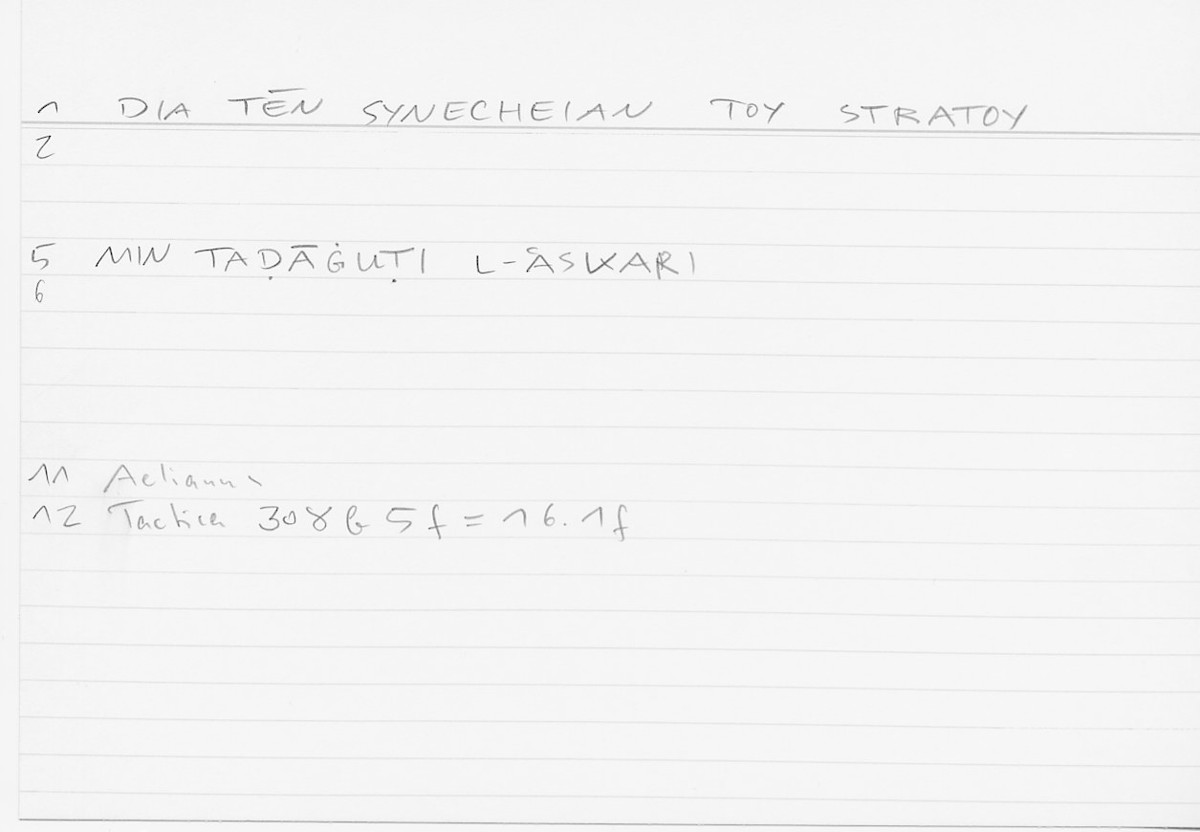 1 DIA TĒN SYNECHEIAN TOY STRATOY
2
5 MIN TAḌĀĠUṬI L-ʿASKARI
6
11 Aelianus
12 Tactica 308 b 5 f = 16.1f